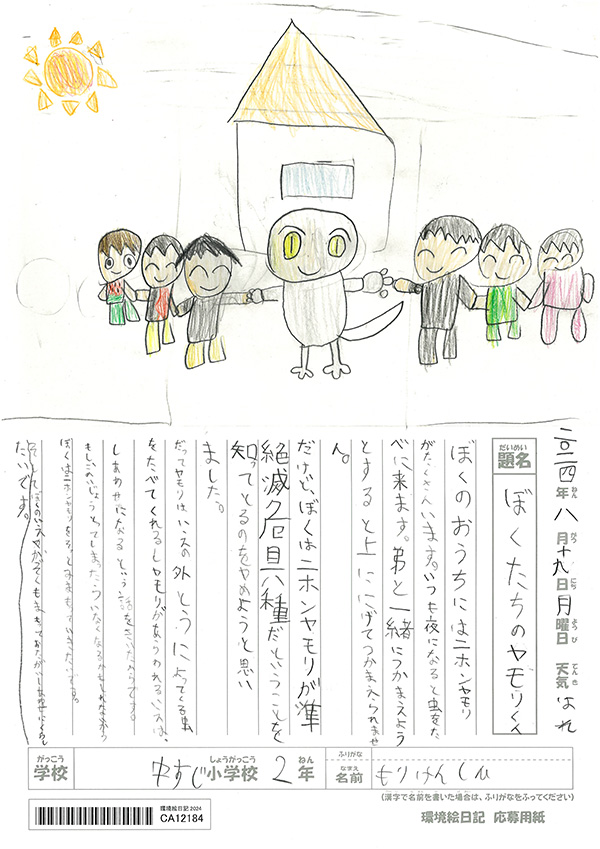 二〇二四年八月十九日月曜日 天気 はれ
ねん がつ にち ようび てんき
だいめい
題名 ぼくたちのヤモリくん
ぼくのおうちにはニホンヤモリ
がたくさんいます。いつも夜になると虫をた
べに来ます。弟と一緒につかまえよう
とすると上ににげてつかまえられませ
ん。
だけど、ぼくはニホンヤモリが準
絶滅危惧種だということを
知ってとるのをやめようと思い
ました。
だってヤモリはいえの外とうによってくる虫
をたべてくれるしヤモリがあらわれるいえは、
しあわせになるという話をきいたからです。
もしこのいじょうとってしまったらいなくなるかもしれないから
ぼくはニホンヤモリをそっとみまもっていきたいです。
そしてぼくのいえやかぞくもまもっておたがいしあわせにくらし
たいです。
がっこう しょうがっこう ねん ふりがな
学校 中すじ小学校 2年 なまえ 名前 もりけんしん
(漢字で名前を書いた場合は、ふりがなをふってください)
環境絵日記2024
CA12184
環境絵日記 応募用紙